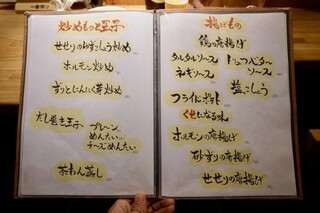 炒めもっと玉子
せせりのゆずこしょう炒め
ホルモン炒め
ずりとにんにく芽炒め
だし巻き玉子
プレーン
めんたい
チーズめんたい
茶わん蒸し
揚げもの
鶏の唐揚げ
タルタルソース
ネギソース
塩こしょう
フライドポテト
くせになる味
ホルモンの唐揚げ
砂ずりの唐揚げ
せせりの唐揚げ